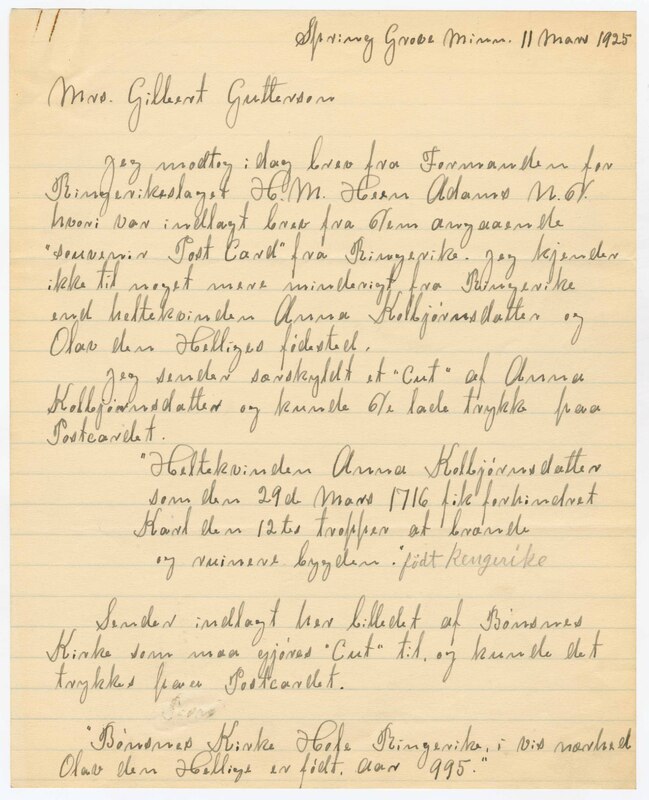 Spring Grove Minn. 11 Mars 1925
Mrs. Gilbert Gutterson
Jeg modtog i dag brev fra Formanden for
Ringerikeslaget H. M. Heen Adams N. D.
hvori var indlagt brev fra Dem angaaende
"souvenir Post Card" fra Ringerike. Jeg kjender
ikke til noget mere minderigt fra Ringerike
end heltekvinden Anna Kolbjørnsdatter og
Olav den Helliges fødested.
Jeg sender særskyldt et "Cut" af Anna
Kolbjørnsdatter og kunde De lade trykke paa
Postcardet.
"Heltekvinden Anna Kolbjørnsdatter
som den 29d Mars 1716 fik forhindret
Karl den 12tes tropper at brænde
og ruinere bygden." født Rengerike
Sender indlagt her billedet af Bønsnes
Kirke som maa gjøres "Cut" til, og kunde det
trykkes paa Postcardet.
"Bønsnes Kirke Hole Ringerike, i vis nærhed
Olav den Hellige er født, aar 995."